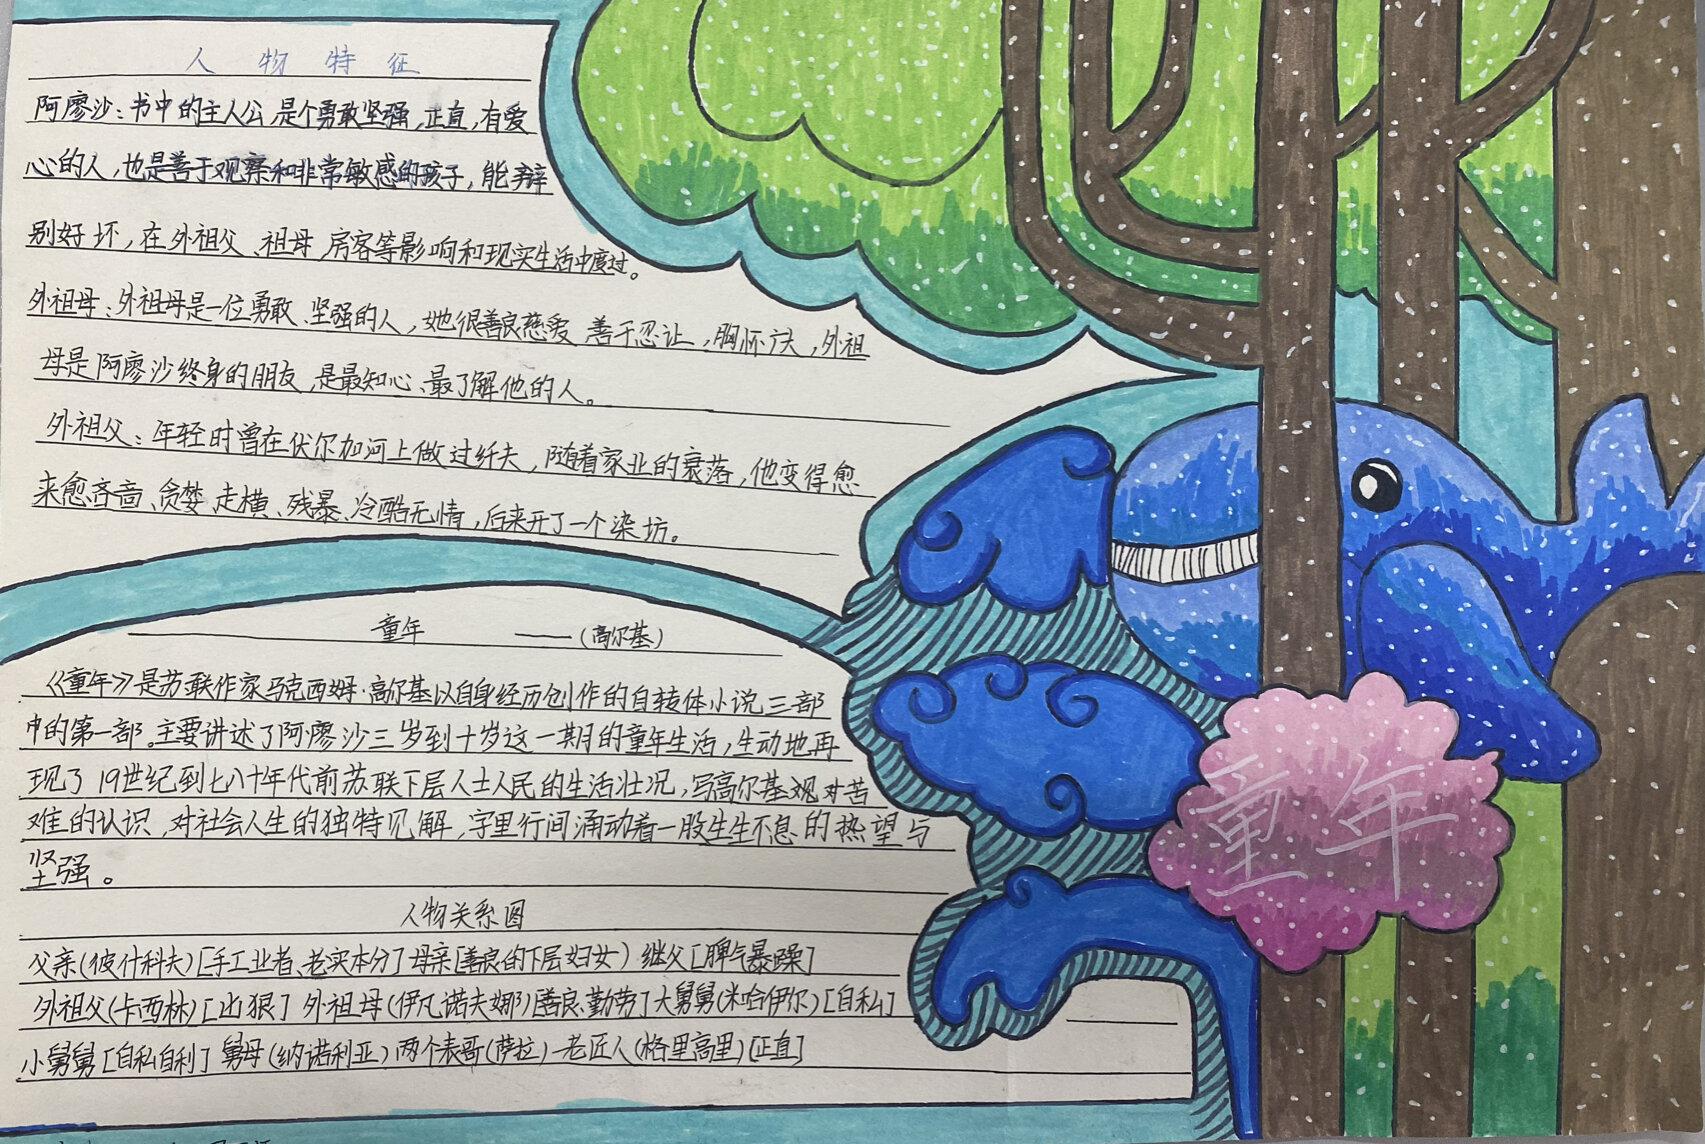 人物特征
阿廖沙:书中的主人公,是个勇敢坚强,正直,有爱
心的人,也是善于观察和非常敏感的孩子,能辩
别好坏,在外祖父、祖母,房客等影响和现实生活中度过。
外祖母:外祖母是一位勇敢、坚强的人,她很善良慈爱,善于忍让,胸怀广大,外祖
母是阿廖沙终身的朋友,是最知心、最了解他的人。
外祖父:年轻时曾在伏尔加河上做过纤夫,随着家业的衰落,他变得愈
来愈吝啬、贪婪、走横、残暴、冷酷无情,后来开了一个染坊。
童年 ——(高尔基)
《童年》是苏联作家马克西姆·高尔基以自身经历创作的自转体小说三部
中的第一部。主要讲述了阿廖沙三岁到十岁这一期的童年生活,生动地再
现了19世纪到七八十年代前苏联下层人士人民的生活壮况,写高尔基观对苦
难的认识,对社会人生的独特见解,字里行间涌动着一股生生不息的热望与
坚强。
人物关系图
父亲(彼什科夫)[手工业者、老实本分]母亲[善良的下层妇女)继父[脾气暴躁]
外祖父(卡西林)[凶狠]外祖母(伊凡诺夫娜)[善良、勤劳]大舅舅(米哈伊尔)[自私]
小舅舅[自私自利]舅母(纳诺利亚)两个表哥(萨拉)一老匠人(格里高里)[正直]
童年